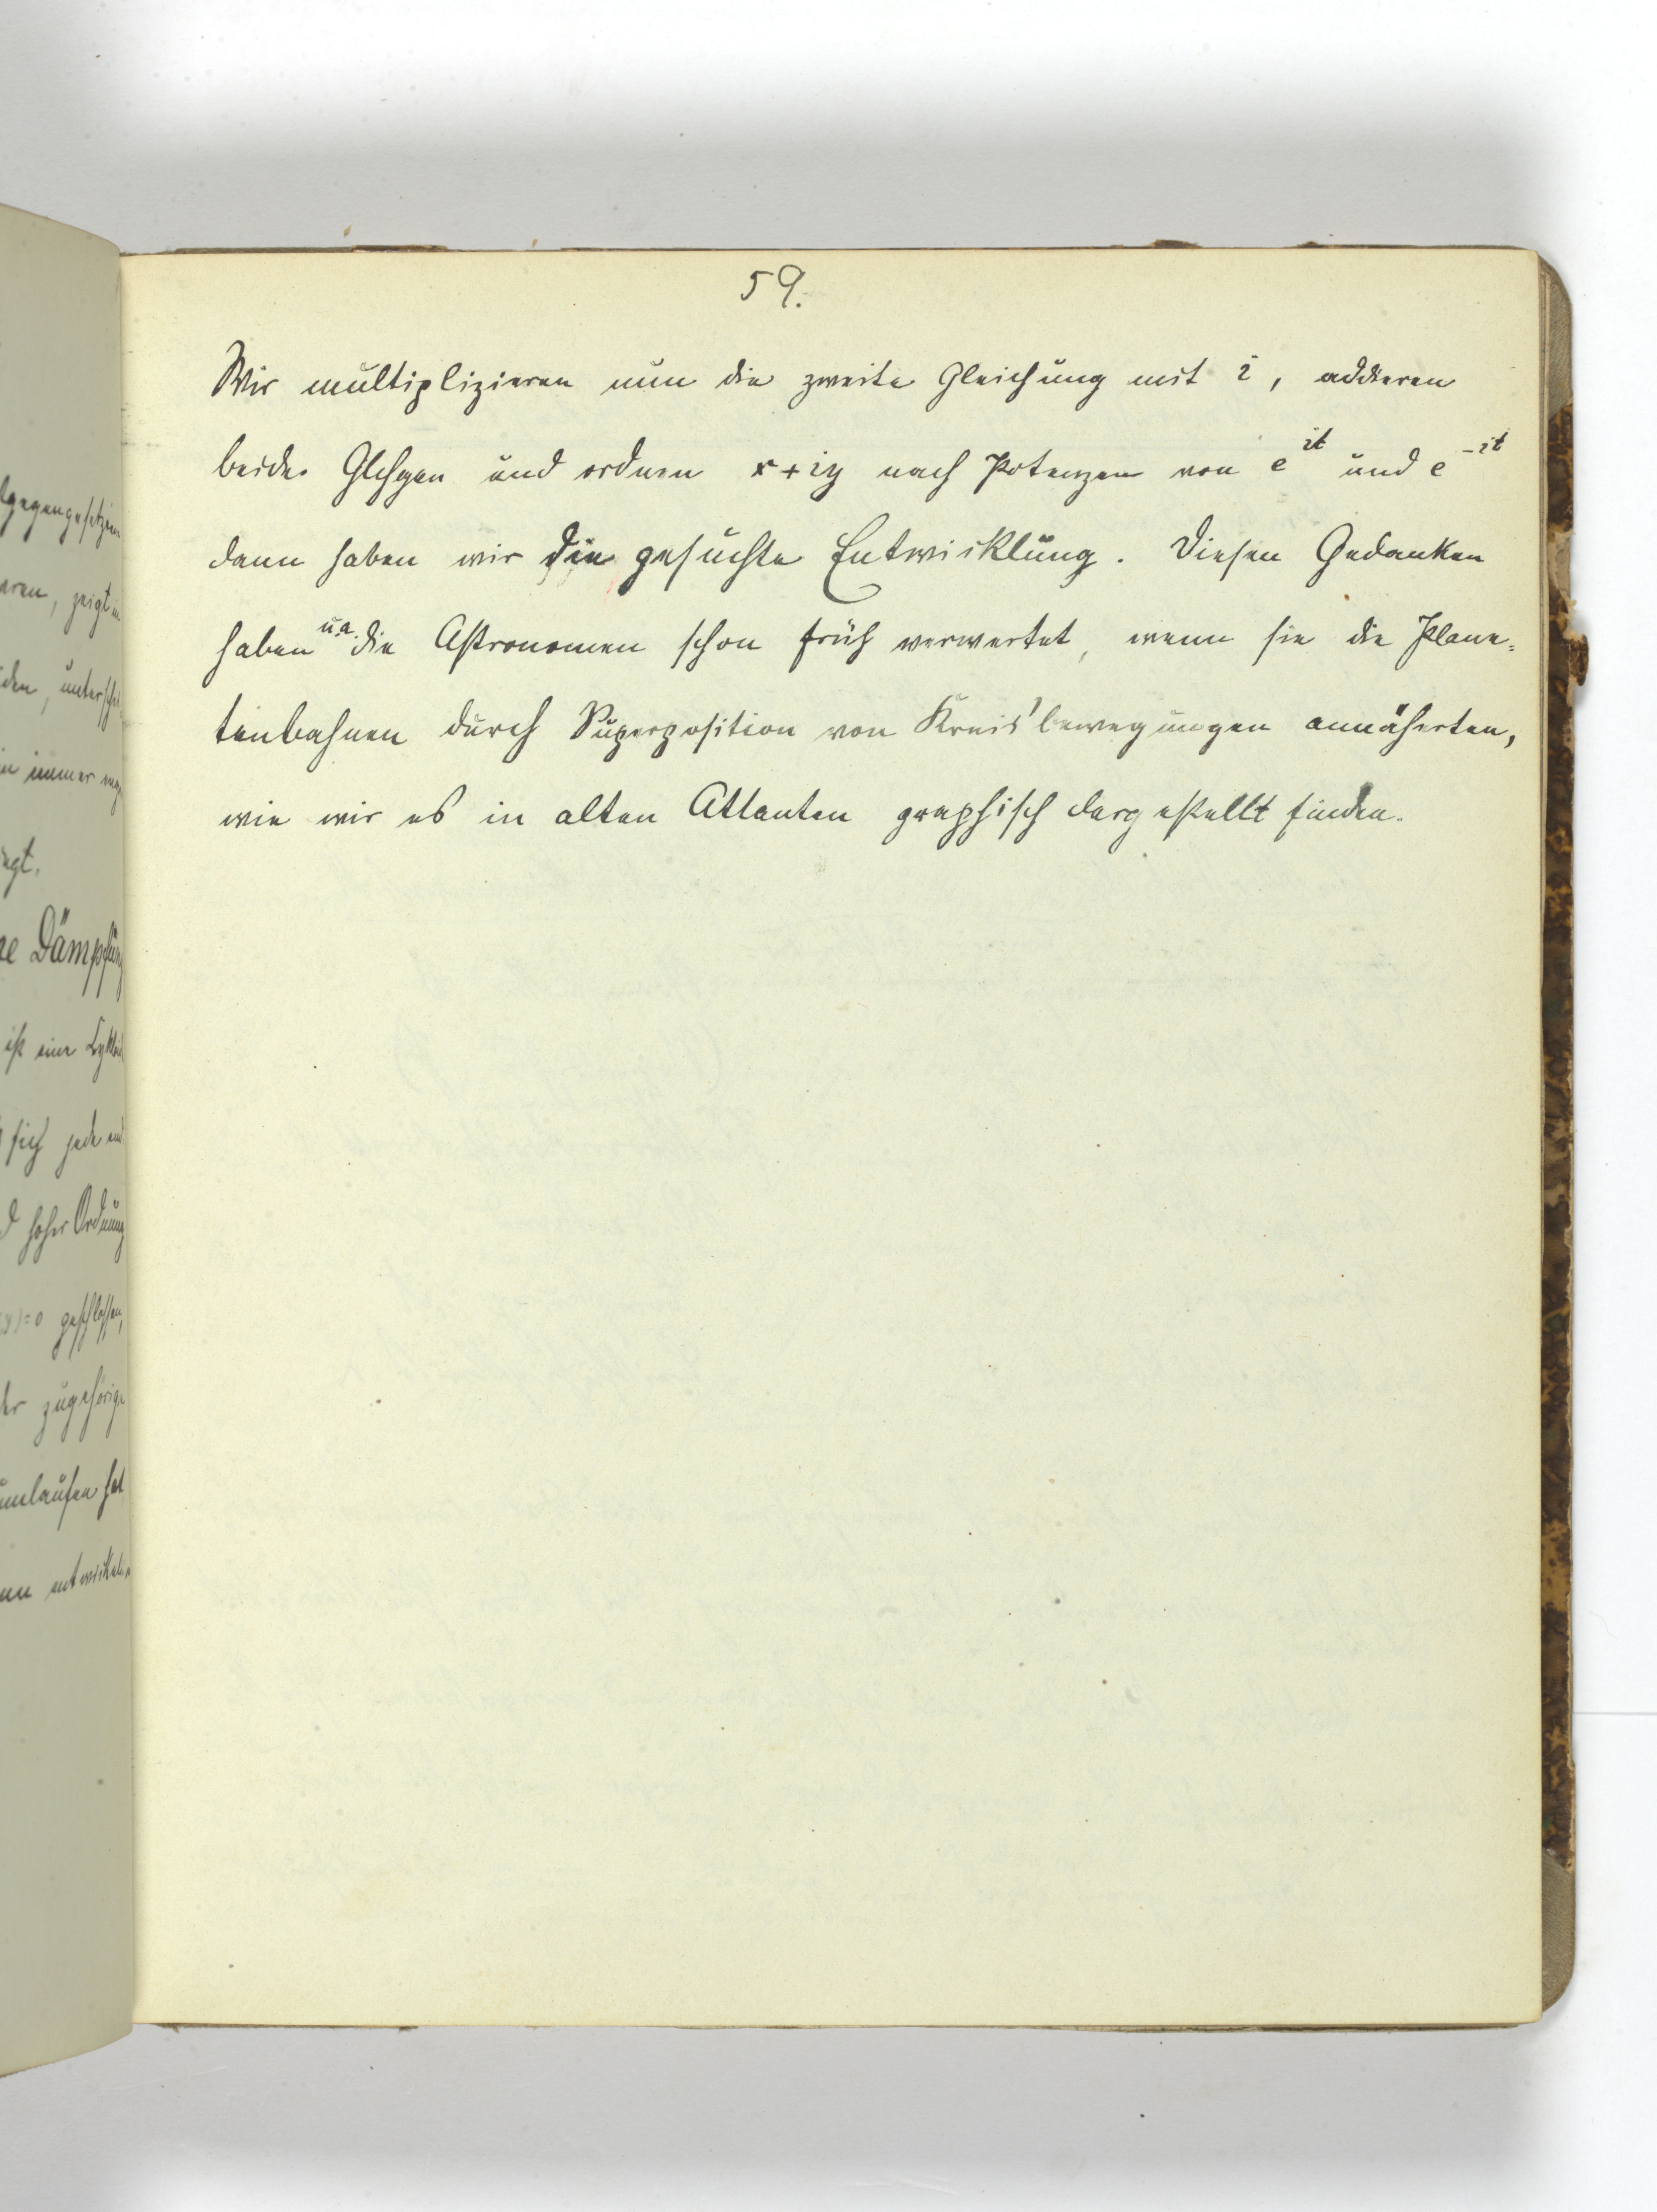 59.
Wir multiplizieren nun die zweite Gleichung mit i, addieren
beide Glchgen und ordnen x+iy nach Potenzen von e^{it} und e^{-it}
dann haben wir die gesuchte Entwicklung. Diesen Gedanken
haben u.a. die Astronomen schon früh verwertet, wenn sie die Plane=
tenbahnen durch Superposition von Kreisbewegungen annäherten,
wie wir es in alten Atlanten graphisch dargestellt finden.
gegengesetzten
eren, zeigt
den, unterschei
immer
egt.
Dämpfung
ist eine
sich jede
hoher Ordnung
)=0 geschlossen,
der zugehörige
umlaufen hat